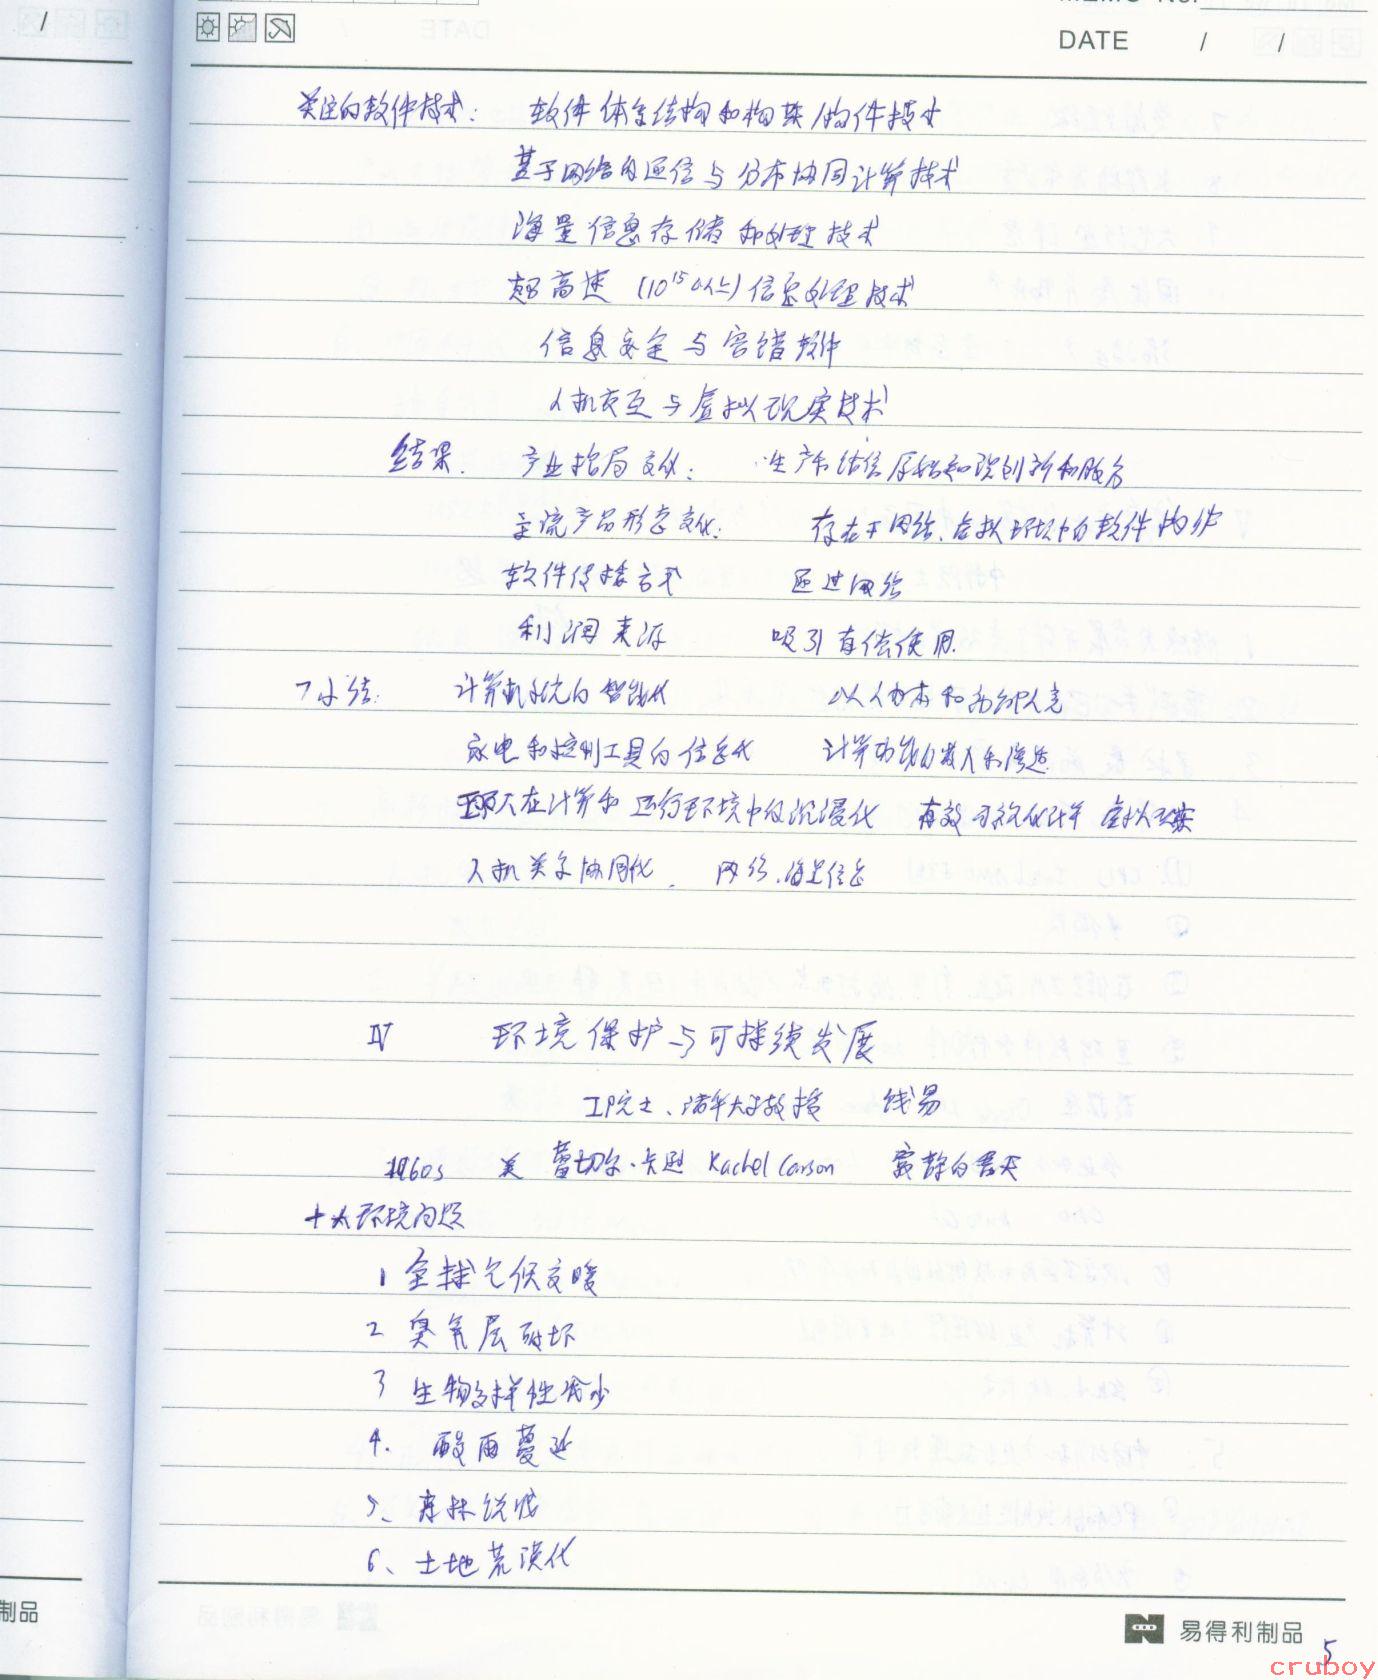 MEMO No.
DATE / /
关注的软件技术: 软件体系结构和构架/构件技术
基于网络的通信与分布协同计算技术
海量信息存储和处理技术
超高速 (10¹⁵以上) 信息处理技术
信息安全与容错软件
人机交互与虚拟现实技术
结果. 产业格局变化: 生产和知识创新和服务
主流产品形态变化: 存在于网络、虚拟环境中的软件构件
软件传播方式 通过网络
利润来源 吸引有偿使用.
小结: 计算机系统的智能化 以人为本和
家电和控制工具的信息化 计算功能的
在计算和运行环境中的沉浸化 有效可视化计算 虚拟现实
人机关系协同化、 网络、海量信息
IV 环境保护与可持续发展
工程院士、清华大学教授 钱易
1960s 美 蕾切尔·卡逊 Rachel Carson 寂静的春天
十大环境问题
1 全球气候变暖
2 臭氧层破坏
3 生物多样性减少
4. 酸雨蔓延
5、森林锐减
6、土地荒漠化
制品
易得利制品
5
cruboy